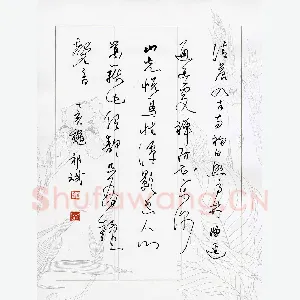 清晨入古寺初日照高林曲迳
通幽處禪房花木深
山光悦鳥性潭影空人心
萬籟此俱寂鐘
磬音 丁亥
Shufawang.CN